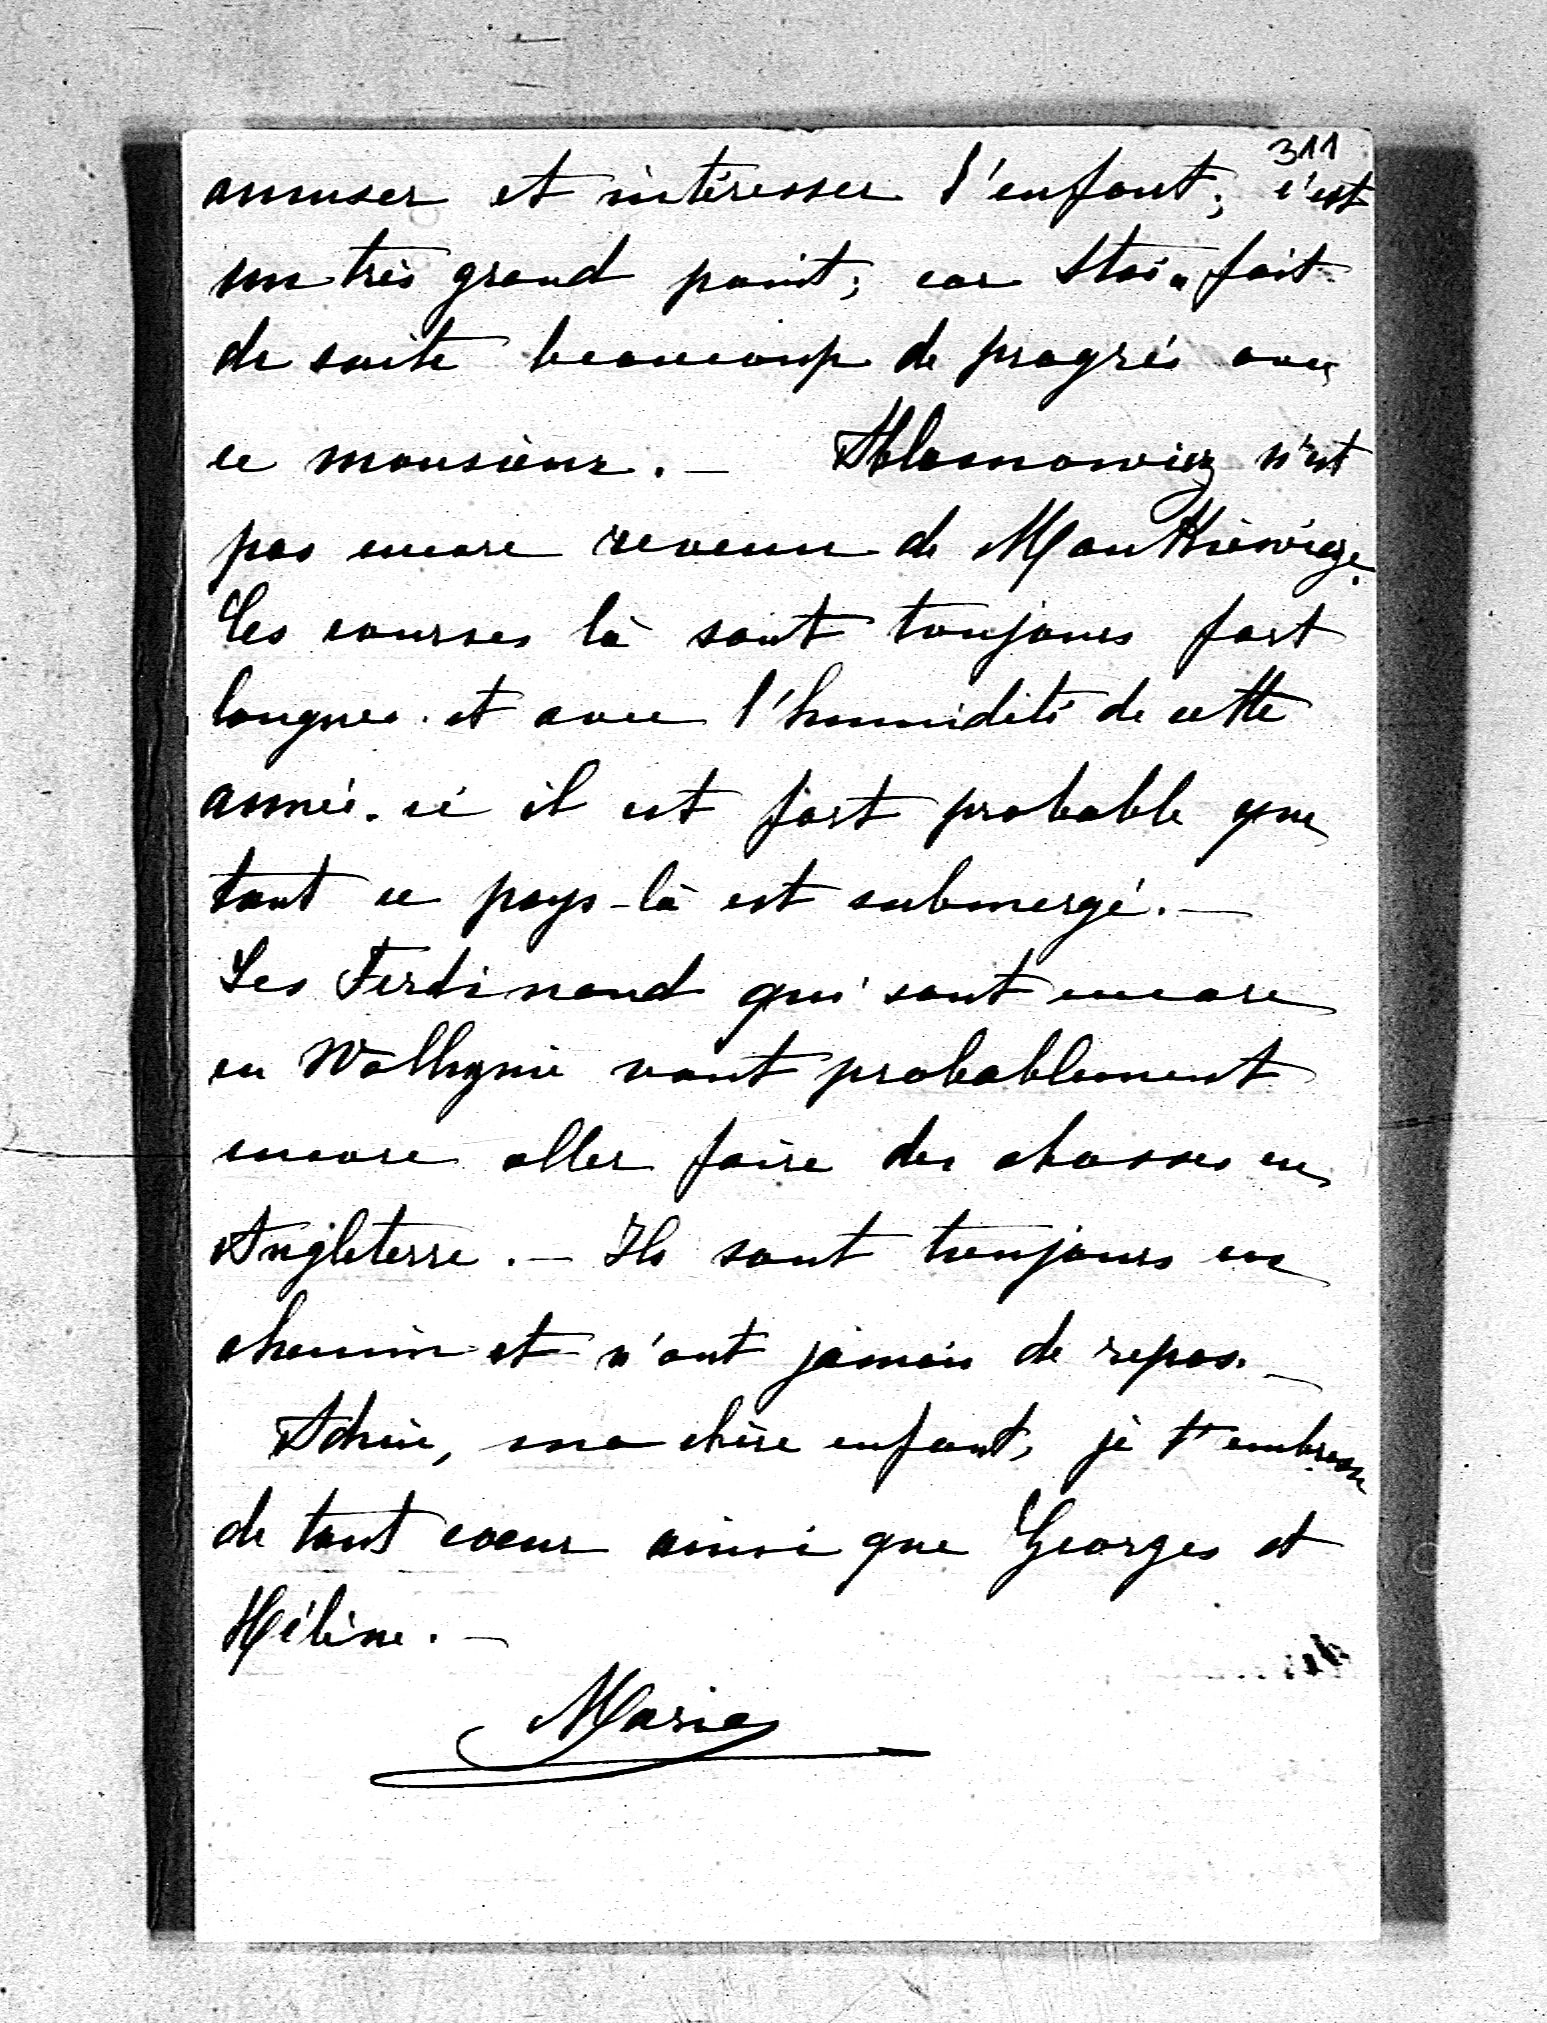 311
amuser et intéresser l'enfant; c'est
un très grand point; car Staś a fait
de suite beaucoup de progrès avec
ce monsieur. — n'est
pas encore revenu de Mańkiewicze.
Ces courses là sont toujours fort
longues et avec l'humidité de cette
année-ci il est fort probable que
tout ce pays-là est submergé. —
Les Ferdinand qui sont encore
en Wolhynie vont probablement
encore aller faire des chasses en
Angleterre. — Ils sont toujours en
chemin et n'ont jamais de repos. —
Adieu, ma chère enfant, je t'embrasse
de tout coeur ainsi que Georges et
Hélène. —
Marie